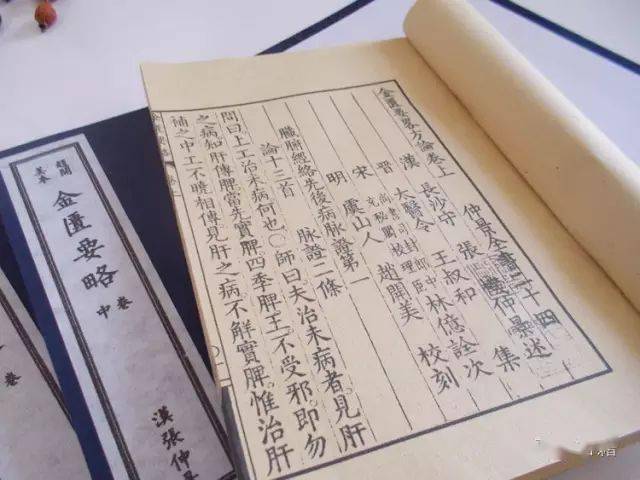 金匱要略方論卷上 仲景全書二十四
漢 長沙守 張機仲景述
晉 太醫令 王叔和 集
宋 尚書司封郎中充秘閣校理臣林億詮次
明 虞山人 趙開美 校刻
臟腑經絡先後病脈證第一
論十三首 脈證二條
問曰上工治未病何也○師曰夫治未病者見肝
之病知肝傳脾當先實脾四季脾王不受邪即勿
補之中工不曉相傳見肝之病不解實脾惟治肝
趙開
美本
金匱要略
中卷
漢張仲
卷